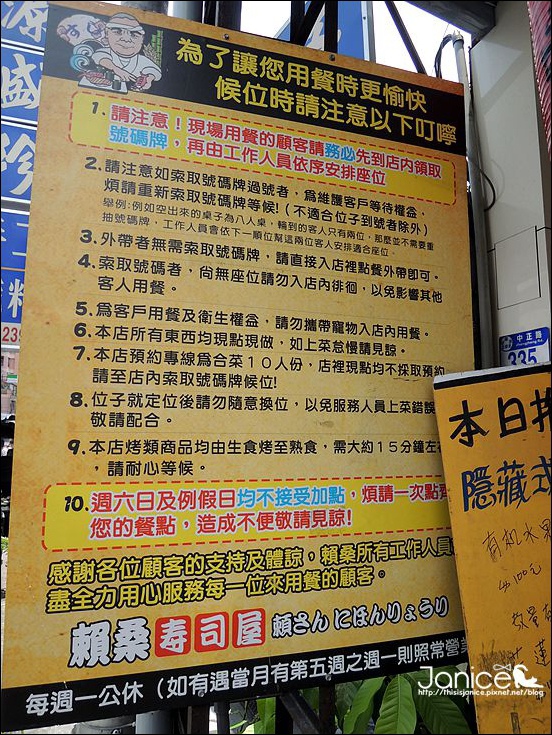 為了讓您用餐時更愉快
候位時請注意以下叮嚀
1. 請注意！現場用餐的顧客請務必先到店內領取
號碼牌，再由工作人員依序安排座位
2. 請注意如索取號碼牌過號者，為維護客戶等待權益，
煩請重新索取號碼牌等候！(不適合位子到號者除外)
舉例：例如空出來的桌子為八人桌，輪到的客人只有兩位，那麼並不需要重
抽號碼牌，工作人員會依下一順位幫這兩位客人安排適合座位。
3. 外帶者無需索取號碼牌，請直接入店裡點餐外帶即可。
4. 索取號碼者，尚無座位請勿入店內徘徊，以免影響其他
客人用餐。
5. 為客戶用餐及衛生權益，請勿攜帶寵物入店內用餐。
6. 本店所有東西均現點現做，如上菜怠慢請見諒。
7. 本店預約專線為合菜10人份，店裡現點均不採取預約
請至店內索取號碼牌候位！
8. 位子就定位後請勿隨意換位，以免服務人員上菜錯誤
敬請配合。
9. 本店烤類商品均由生食烤至熟食，需大約15分鐘左
，請耐心等候。
10. 週六日及例假日均不接受加點，煩請一次點齊
您的餐點，造成不便敬請見諒！
感謝各位顧客的支持及體諒，賴桑所有工作人員
盡全力用心服務每一位來用餐的顧客。
賴桑壽司屋 賴さん にほんりょうり
每週一公休（如有遇當月有第五週之週一則照常營業
中正路
335
本日
隱藏式
有机水果
239
Janice
http://thisisjanice.pixnet.net/blog